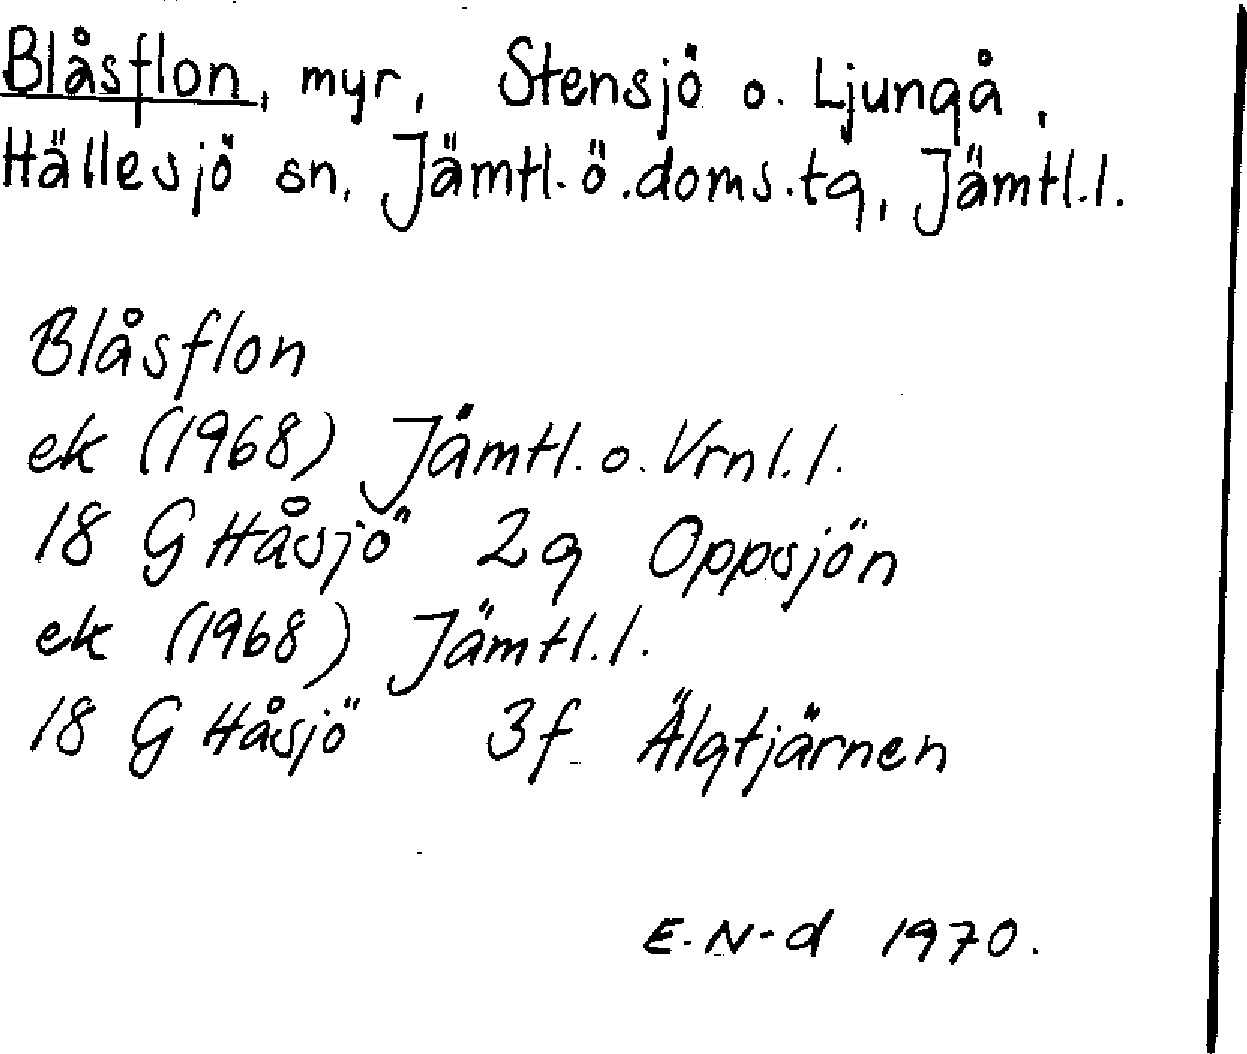 Blåsflon, myr, Stensjö o. Ljungå,
Hällesjö sn, Jämtl. ö. doms. tg, Jämtl. l.
Blåsflon
ek (1968) Jämtl. o. Vrnl. l.
18 G Håsjö 2g Oppsjön
ek (1968) Jämtl. l.
18 G Håsjö 3f Älgtjärnen
E. N-d 1970.